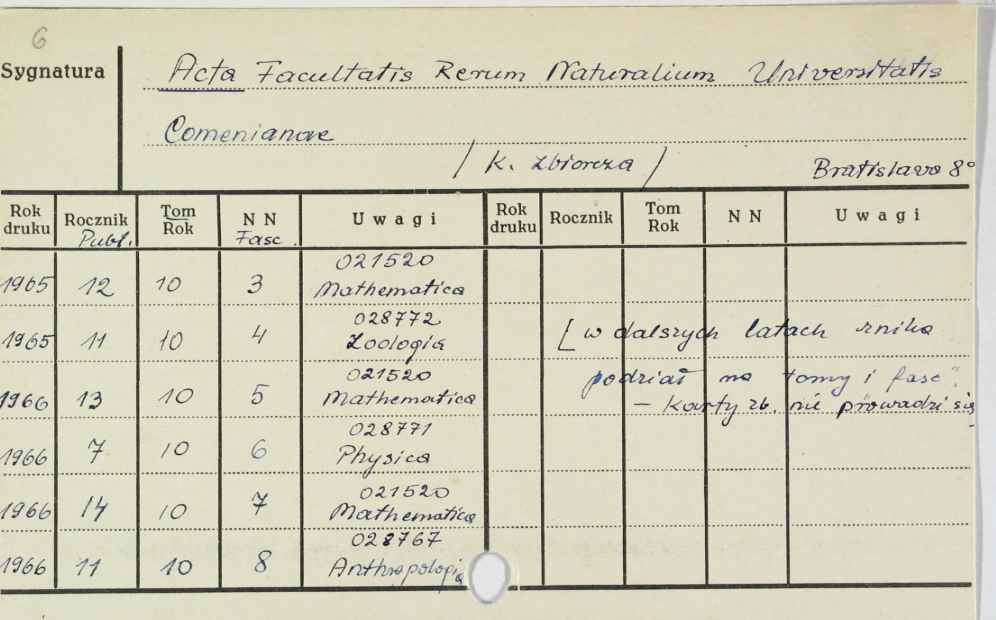 6
Sygnatura
Acta Facultatis Rerum Naturalium Universitatis
Comenianae
/ K. zbiorcza /
Bratislava 8°
Rok druku Rocznik Publ. Tom Rok NN Fasc. Uwagi Rok druku Rocznik Tom Rok NN Uwagi
021520
1965 12 10 3 Mathematica
028772
1965 11 10 4 Zoologia [ w dalszych latach znika
021520 podział na tomy i fasc".
1966 13 10 5 Mathematica — Karty zb. nie prowadzi się
028771
1966 7 10 6 Physica
021520
1966 14 10 7 Mathematica
028767
1966 11 10 8 Anthropologia